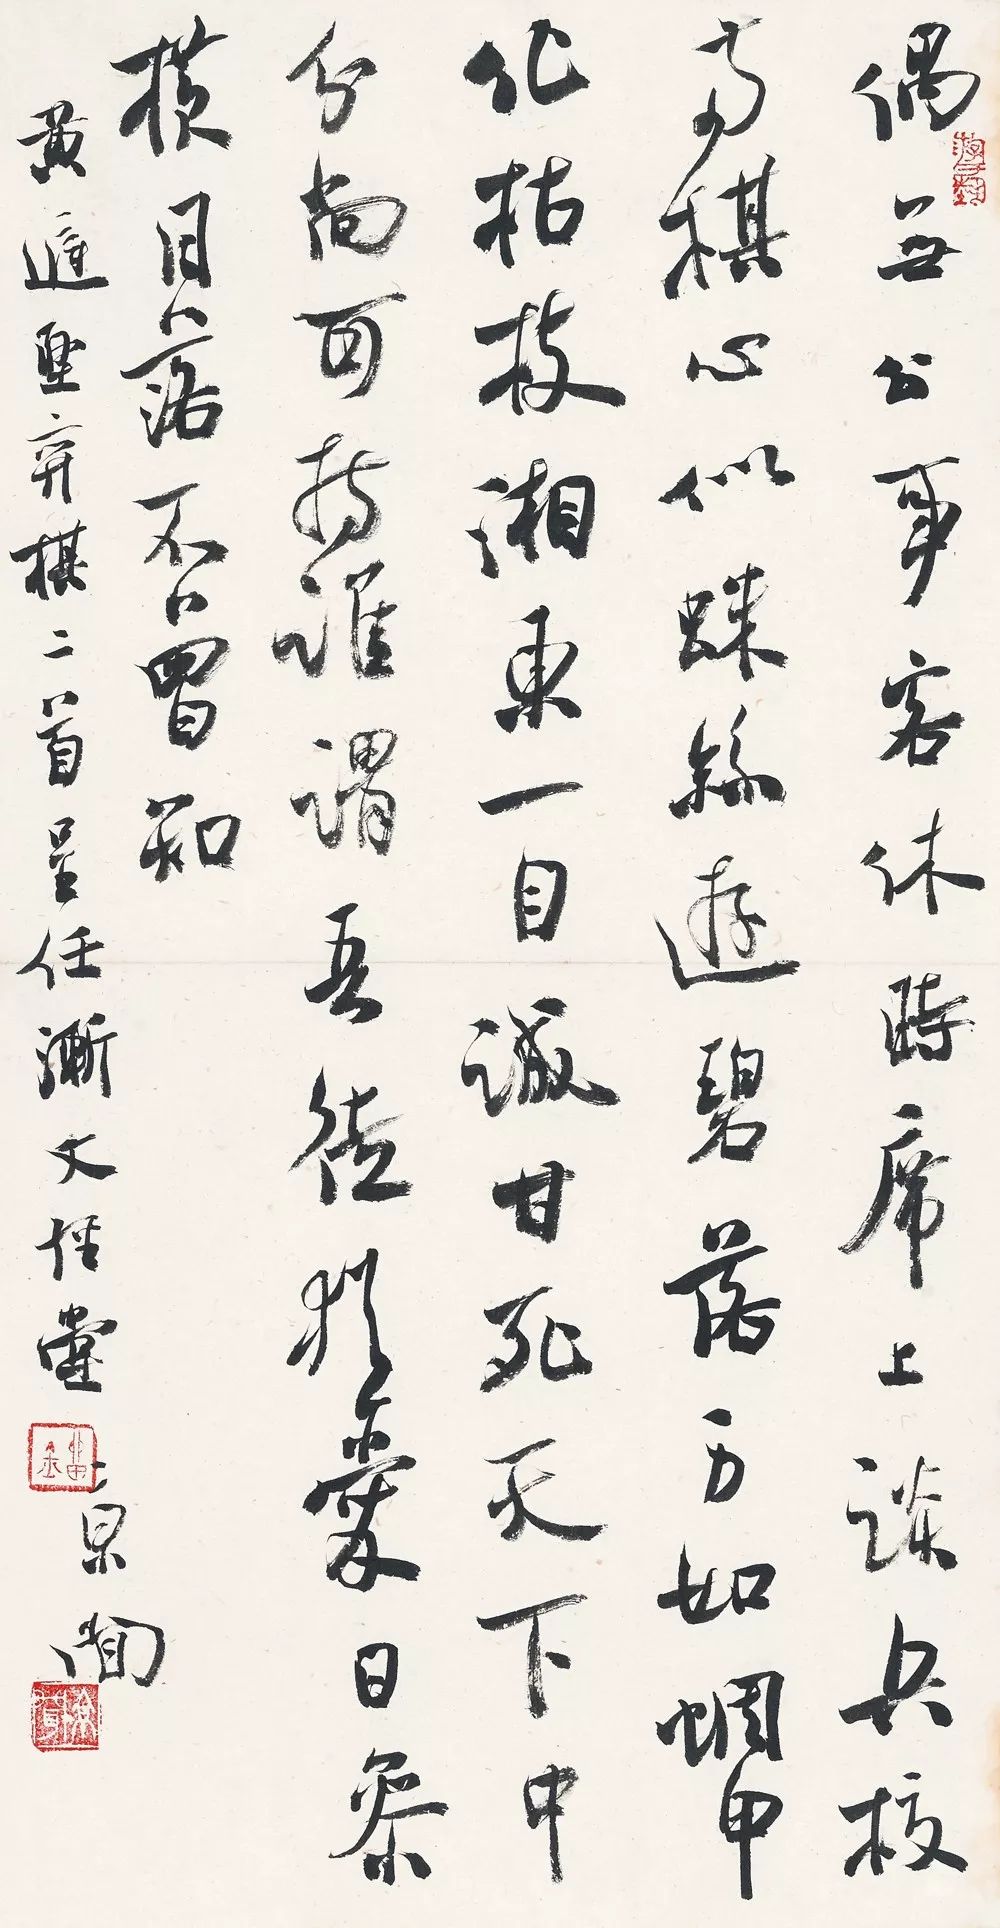 偶無公事客休時席上談兵校
兩棋心似蛛絲遊碧落身如蜩甲
化枯枝湘東一目誠甘死天下中
分尚可持誰謂吾徒猶愛日參
橫月落不曾知
黃庭堅弈棋二首呈任漸文堂
景